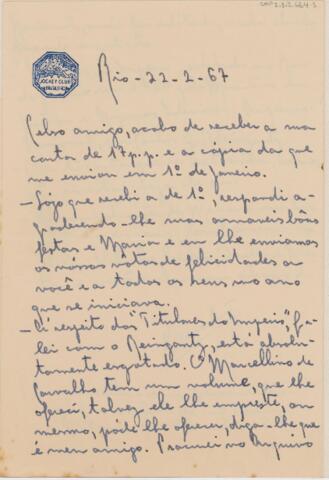 JOCKEY CLUB
Rio - 22-2-67
Celso amigo, acabo de receber a sua
carta de 17 p.p. e a cópia da que
me enviou em 1º de Janeiro.
- Logo que recebi a de 1º, respondi a-
gradecendo-lhe suas amaveis bôas
festas e Maria e eu lhe enviamos
os nossos votos de felicidades a
você e a todos os seus no ano
que se iniciava.
- A' respeito dos "Titulares do Imperio", fa-
lei com o Reingantz, está absolu-
tamente esgotado. O Marcellino de
Carvalho tem um volume, que lhe
ofereci, talvez ele lhe empreste, ou
mesmo, pode lhe oferecer, diga-lhe que
é meu amigo. Procurei no Arquivo